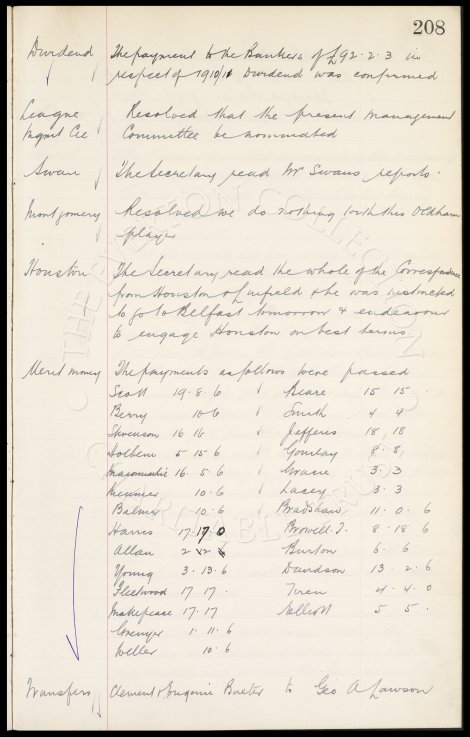 208
Dividend The payment to the Bankers of £92.2.3 in
respect of 1910/11 Dividend was confirmed
League Resolved that the present Management
Mgmt Cee Committee be nominated
Swan The Secretary read Mr Swans reports.
Montgomery Resolved we do nothing with this Oldham
player
Houston The Secretary read the whole of the Correspondence
from Houston & Linfield & he was instructed
to go to Belfast tomorrow & endeavour
to engage Houston on best terms.
Merit money The payments as follows were passed
Scott 19.8.6 Beare 15 15.
Berry 10.6 Smith 4 4
Stevenson 16 16 Jefferis 18 18
Holbem 5 15 6 Gourlay 8.8
Maconnachie 16.5.6 Gracie 3.3
Meunier 10.6 Lacey 3.3
Balmer 10.6 Bradshaw 11.0.6
Harris 17 17 0 Browell.T. 8.18 6
Allan 2 12 6 Burton 6.6
Young 3.13.6 Davidson 13.2.6
Fleetwood 17 17. 4.4.0
Makepeace 17.17 Elliott 5 5.
Grenyer 1.11.6
Weller 10.6
Transfers Clement & Eugenie Baxter to Geo A Lawson
THE EVERTON COLLECTION
CHARITABLE TRUST